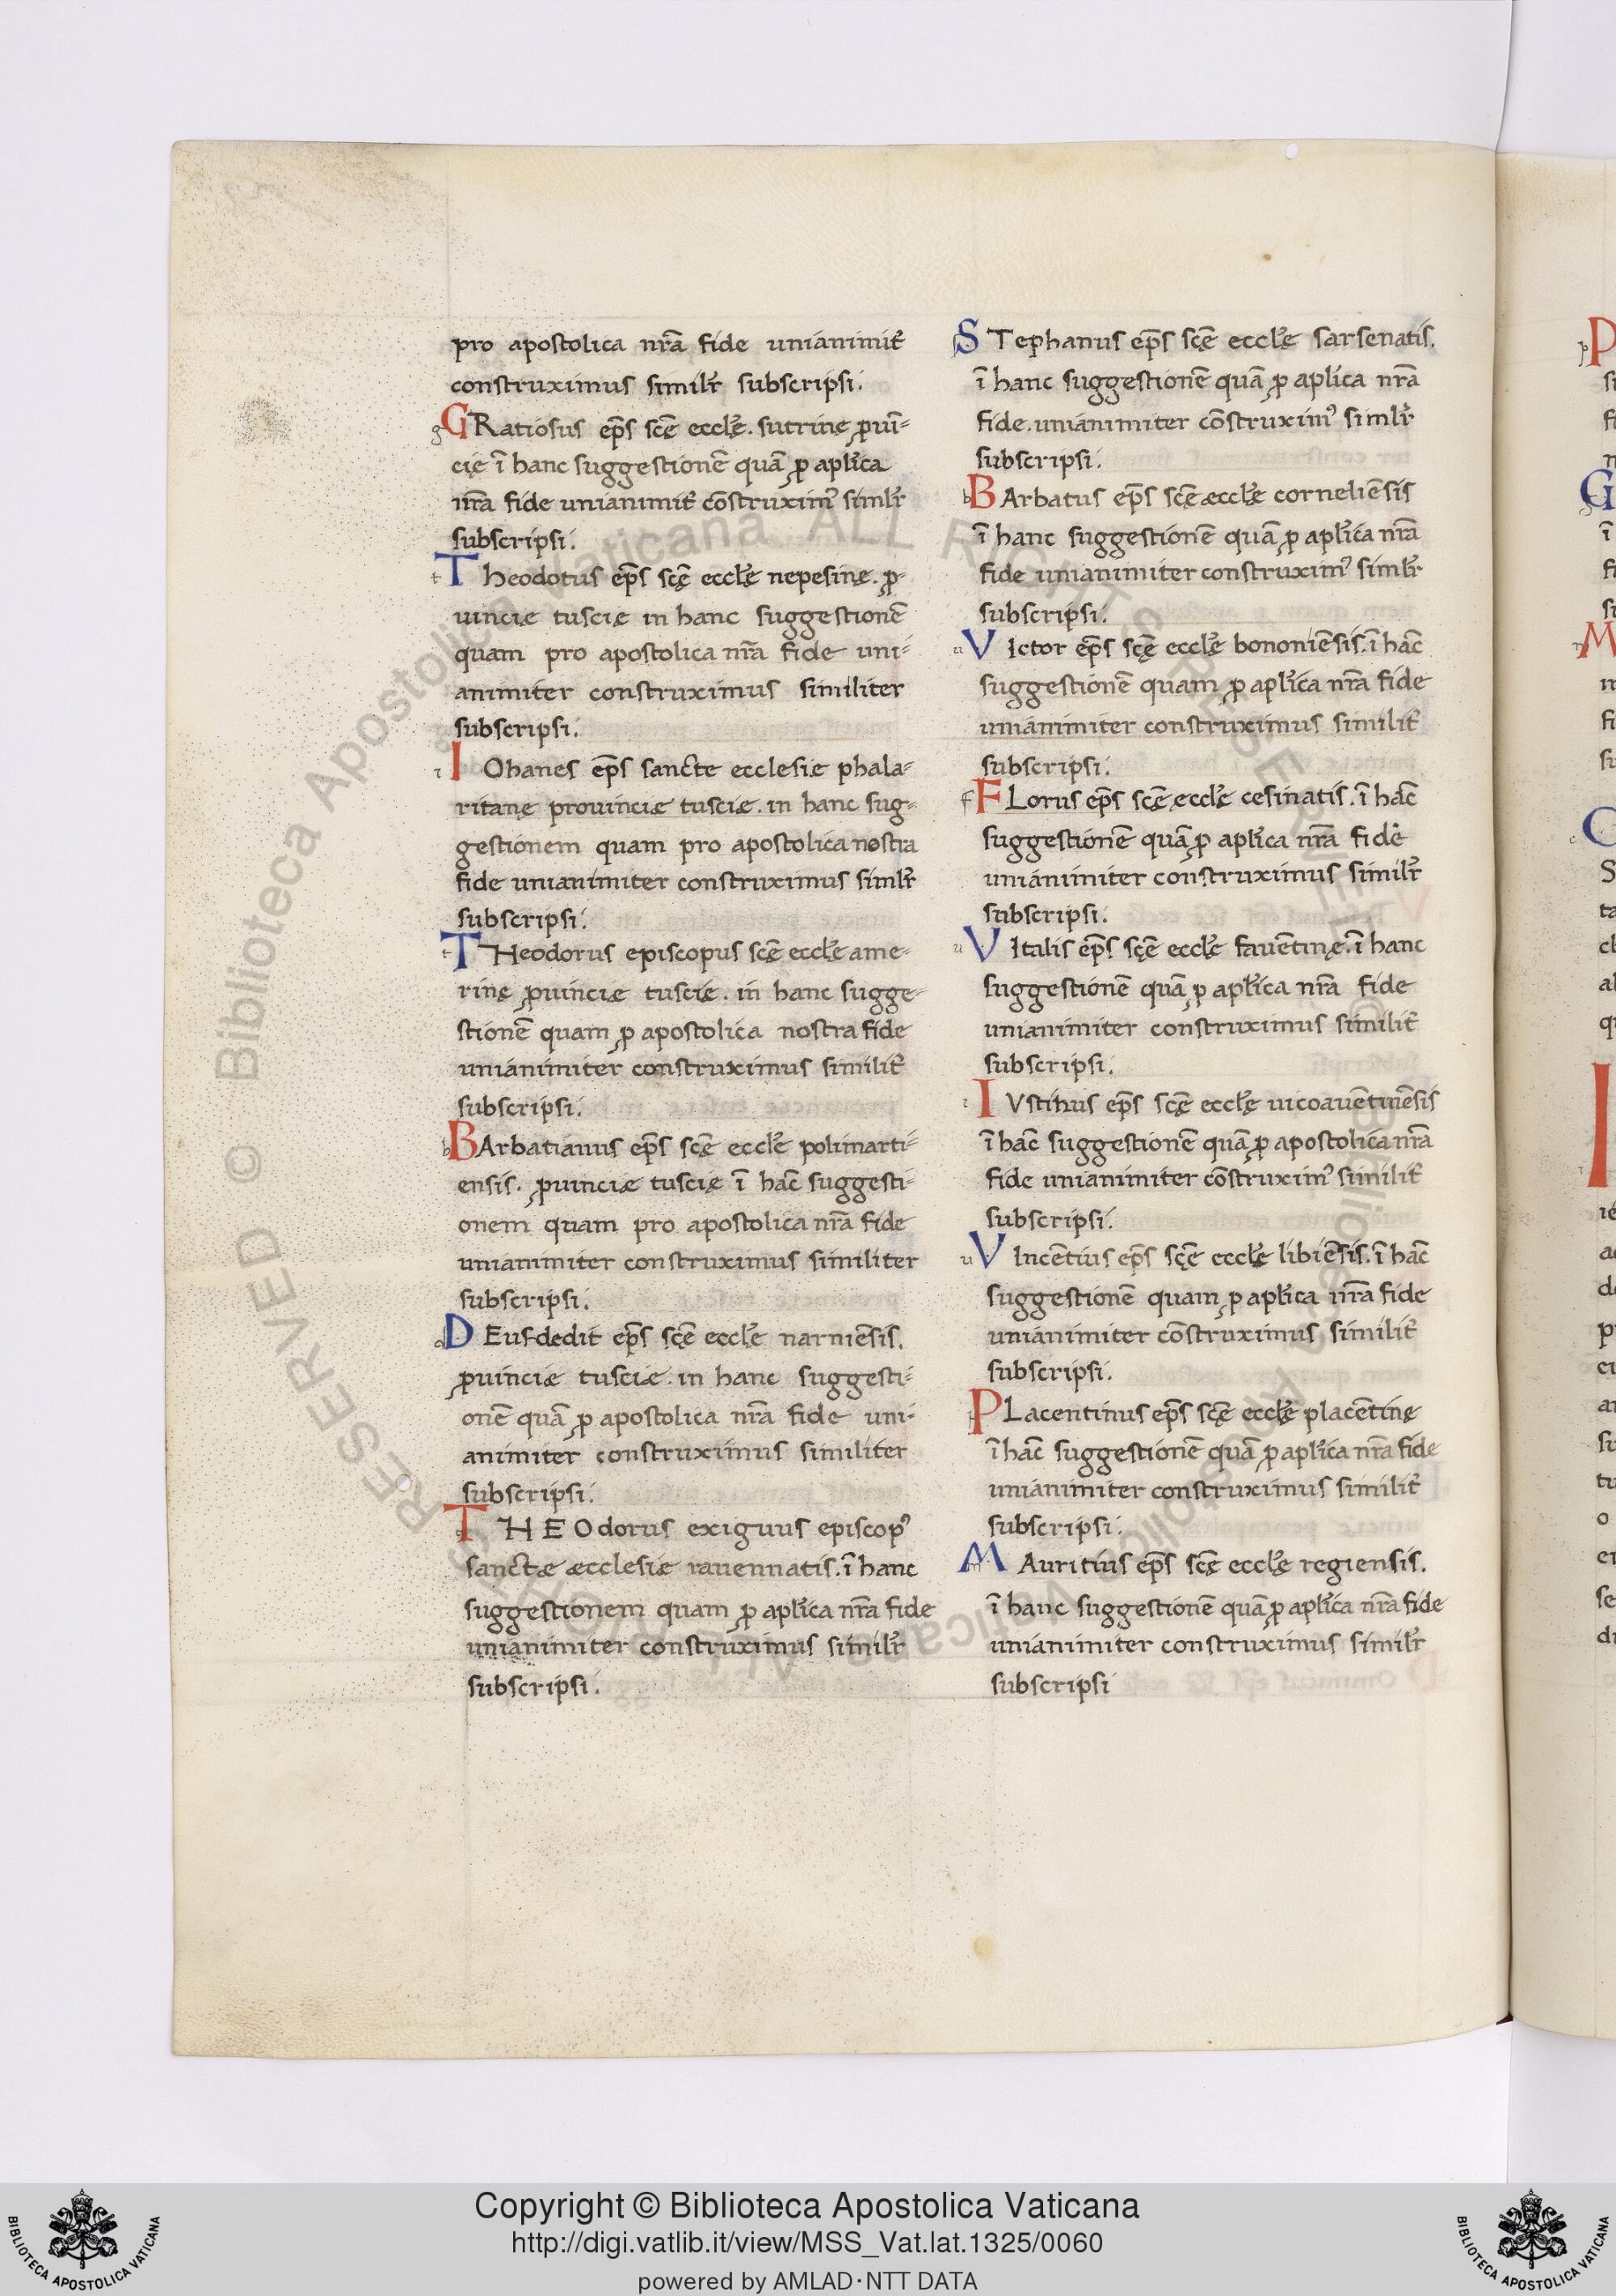 pro apostolica nr̃a fide unianimit̃
construximus similr̃ subscripsi.
GRatiosus ep̃s scẽ eccl̃ę. sutrinę ꝓuĩ-
cię ĩ hanc suggestionẽ quã ꝓ apl̃ica
nr̃a fide unianimit̃ cõstruximꝰ simlr̃
subscripsi.
Theodotus ep̃s scę̃ eccl̃ę nepesinę. ꝓ-
uincię tuscię in hanc suggestionẽ
quam pro apostolica nr̃a fide uni-
animiter construximus similiter
subscripsi.
IOhanes ep̃s sancte ecclesiæ phala-
ritanę prouincię tuscię. in hanc sug-
gestionem quam pro apostolica nostra
fide unianimiter construximus simlr̃
subscripsi.
THeodorus episcopus scę̃ eccl̃ę ame-
rinę ꝓuincię tuscię. in hanc sugge-
stionẽ quam ꝓ apostolica nostra fide
unianimiter construximus similit̃
subscripsi.
BArbatianus ep̃s scę̃ eccl̃ę polimarti-
ensis. ꝓuincię tuscię ĩ hãc suggesti-
onem quam pro apostolica nr̃a fide
unianimiter construximus similiter
subscripsi.
DEusdedit ep̃s scę̃ eccl̃ę narniẽsis.
ꝓuincię tuscię. in hanc suggesti-
onẽ quã ꝓ apostolica nr̃a fide uni-
animiter construximus similiter
subscripsi.
THEOdorus exiguus episcopꝰ
sanctæ æcclesiæ rauennatis. ĩ hanc
suggestionem quam ꝓ apl̃ica nr̃a fide
unianimiter construximus similr̃
subscripsi.
STephanus ep̃s scę̃ eccl̃ę sarsenatis.
ĩ hanc suggestionẽ quã ꝓ aplica nr̃a
fide. unianimiter cõstruximꝰ simlr̃
subscripsi.
BArbatus ep̃s scę̃ æccl̃ę corneliẽsis
ĩ hanc suggestionẽ quã ꝓ apl̃ica nr̃a
fide unianimiter construximꝰ simlr̃
subscripsi.
VIctor ep̃s scę̃ eccl̃ę bononiẽsis. ĩ hãc
suggestionẽ quam ꝓ apl̃ica nr̃a fide
unianimiter construximus similit̃
subscripsi.
FLorus ep̃s scę̃ ęccl̃ę cesinatis. ĩ hãc
suggestionẽ quã ꝓ apl̃ica nr̃a fide
unianimiter construximus similr̃
subscripsi.
VItalis ep̃s scę̃ eccl̃ę fauẽtinę. ĩ hanc
suggestionẽ quã ꝓ apl̃ica nr̃a fide
unianimiter construximus similit̃
subscripsi.
IVstinus ep̃s scę̃ eccl̃ę uicoauẽtinẽsis
ĩ hãc suggestionẽ quã ꝓ apostolica nr̃a
fide unianimiter cõstruximꝰ similit̃
subscripsi.
VIncẽtius ep̃s scę̃ eccl̃ę libiẽsis. ĩ hãc
suggestionẽ quam ꝓ apl̃ica nr̃a fide
unianimiter cõstruximus similit̃
subscripsi.
PLacentinus ep̃s scę̃ eccl̃ę placẽtinę
ĩ hãc suggestionẽ quã ꝓ apl̃ica nr̃a fide
unianimiter construximus similit̃
subscripsi.
MAuritius ep̃s scę̃ eccl̃ę regiensis.
ĩ hanc suggestionẽ quã ꝓ apl̃ica nr̃a fide
unianimiter construximus similr̃
subscripsi
Copyright © Biblioteca Apostolica Vaticana
http://digi.vatlib.it/view/MSS_Vat.lat.1325/0060
powered by AMLAD·NTT DATA